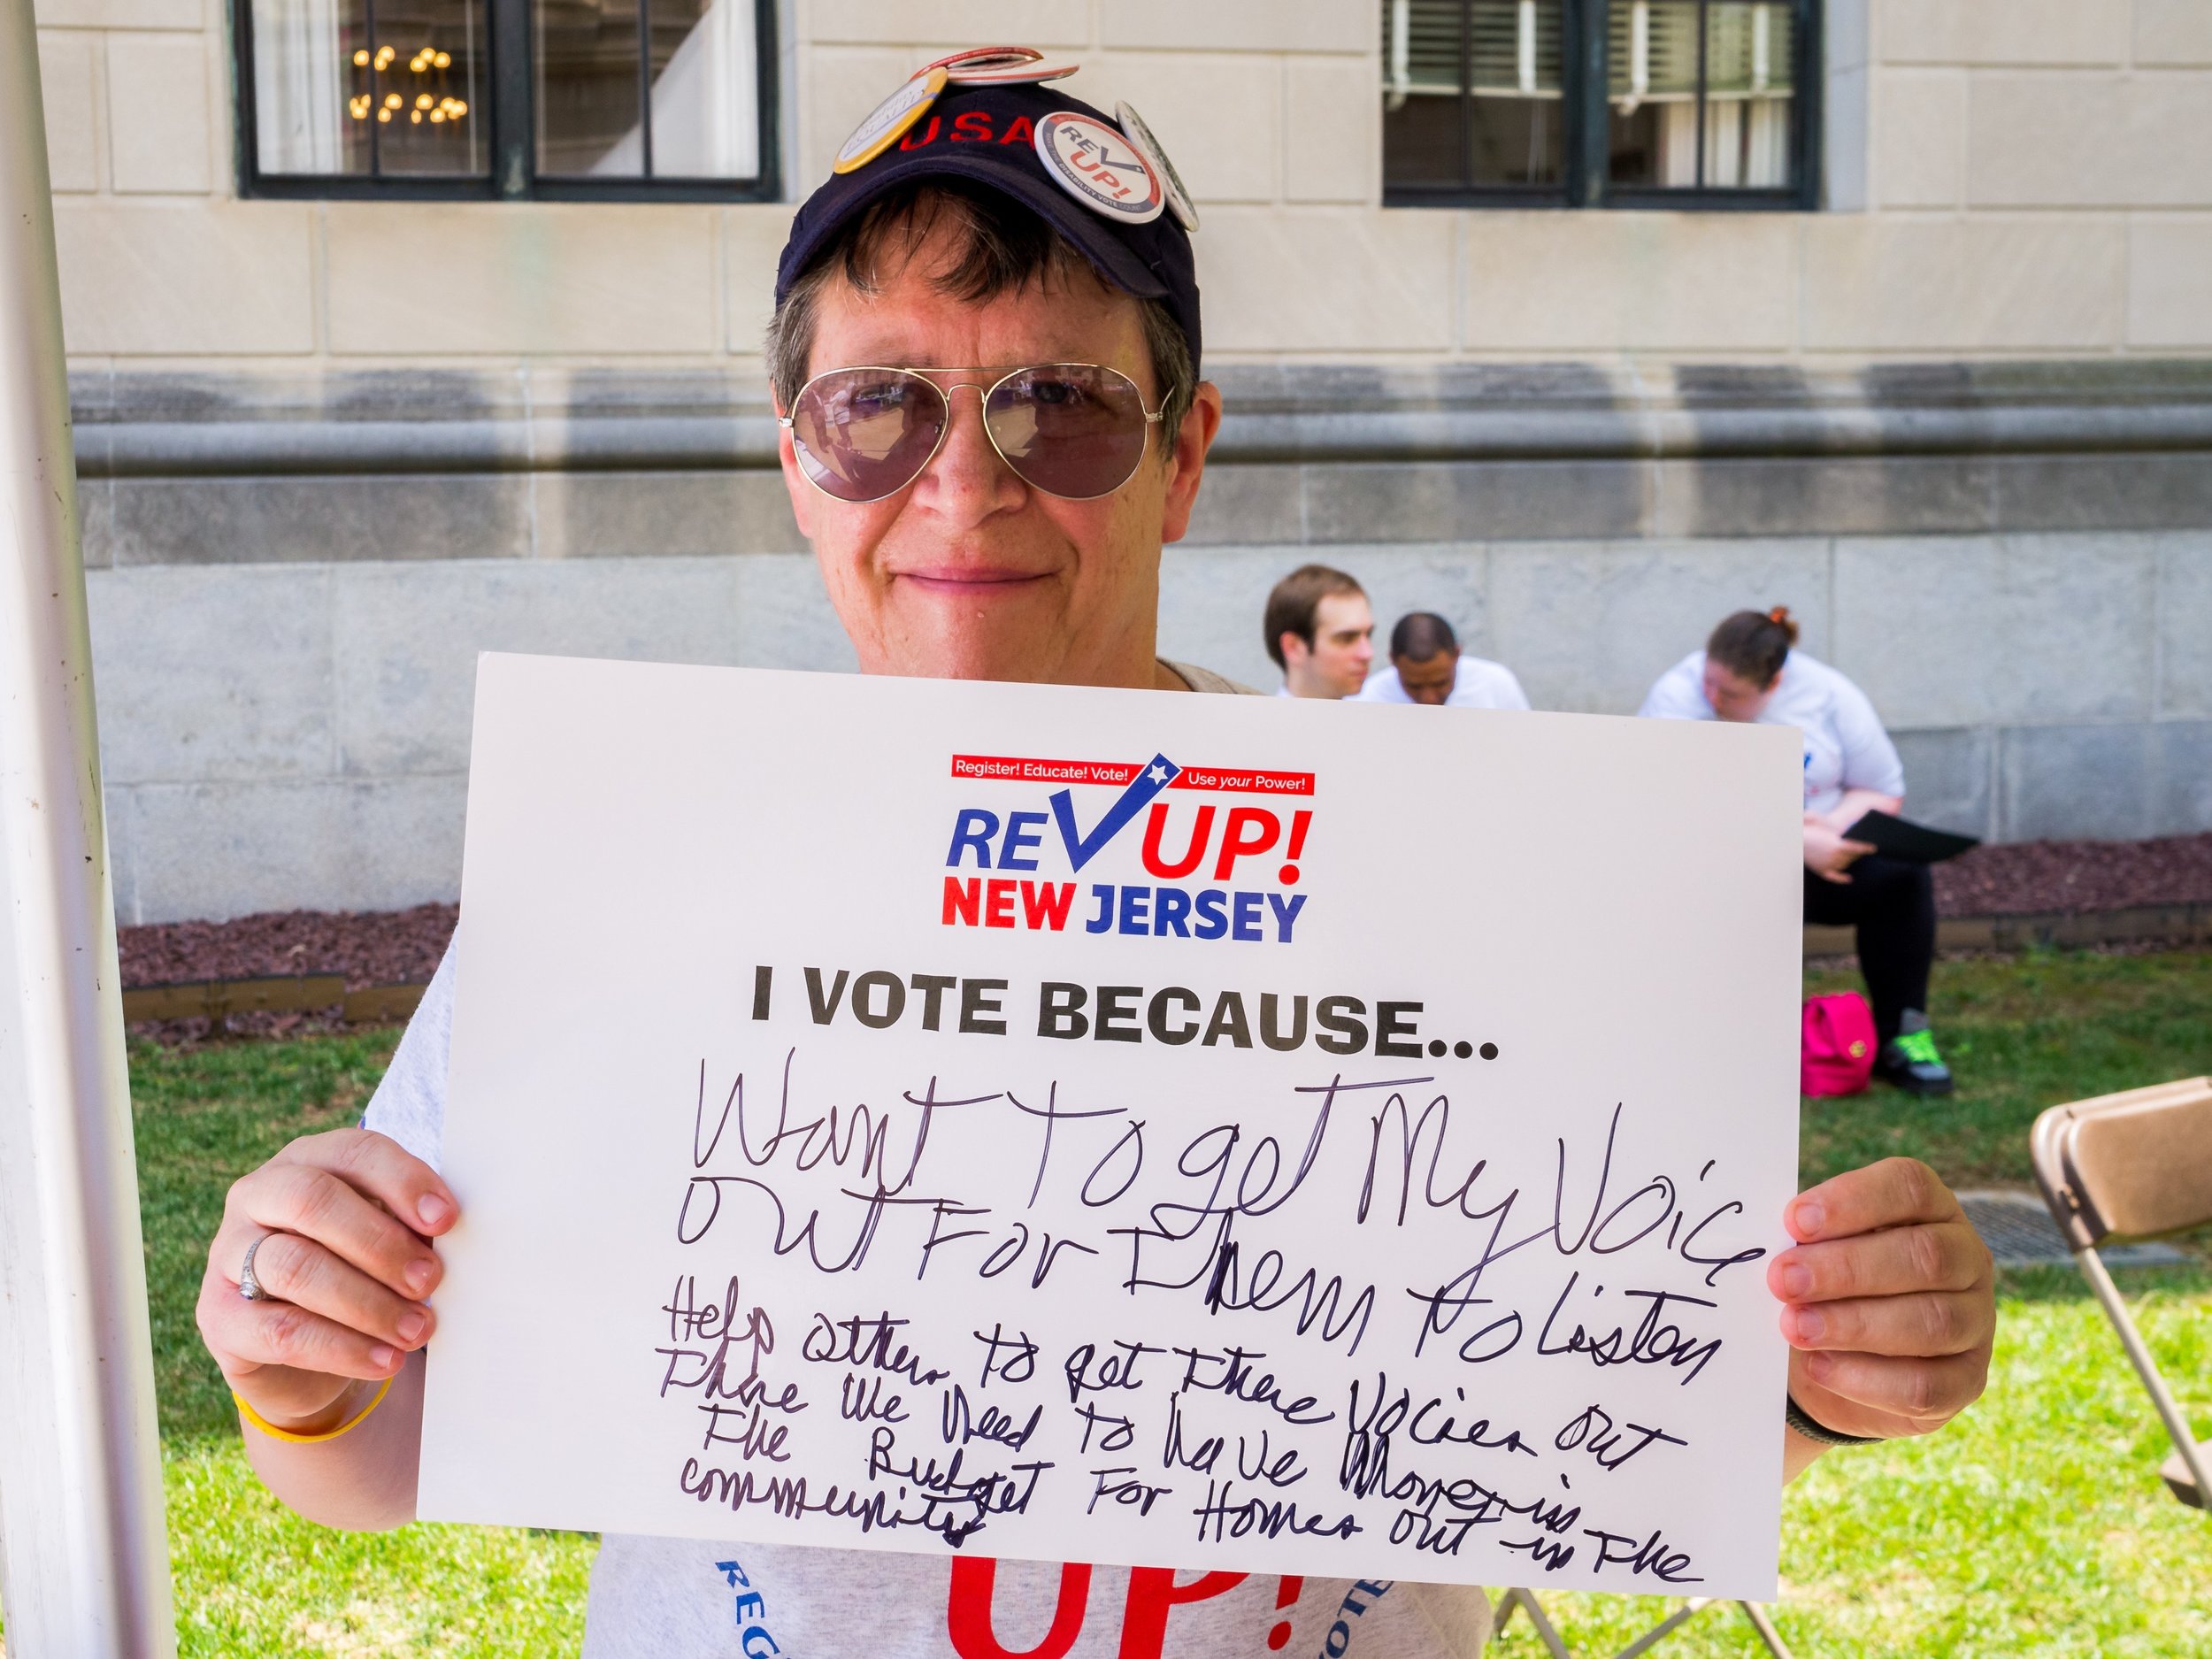 USA
REV UP!
Register! Educate! Vote! Use your Power!
REVUP!
NEW JERSEY
I VOTE BECAUSE...
Want To get My Voice
Out For Them to Listen
Help others to get There Vocies out
There We Need to have Money in
The Budget For Homes out in The
community
UP!
REG
VOTE